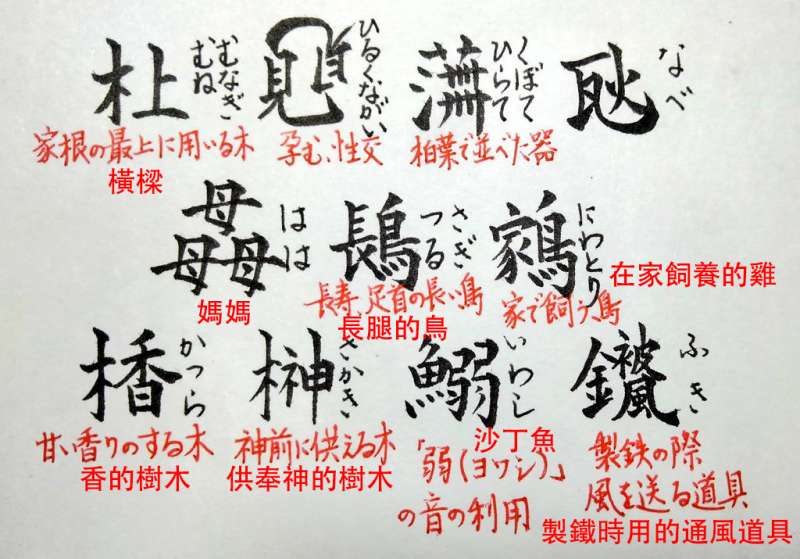 むなぎ
むね
ひるくながい
くぼて
ひらて
なべ
家根の最上に用いる木
橫樑
孕む、性交
柏葉で並べた器
はは
媽媽
さぎ
つる
長寿、足首の長い鳥
長腿的鳥
にわとり
家で飼う鳥
在家飼養的雞
かつら
甘い香りのする木
香的樹木
榊
さかき
神前に供える木
供奉神的樹木
鰯
いわし
沙丁魚
「弱(ヨワシ)」
の音の利用
ふき
製鉄の際
風を送る道具
製鐵時用的通風道具